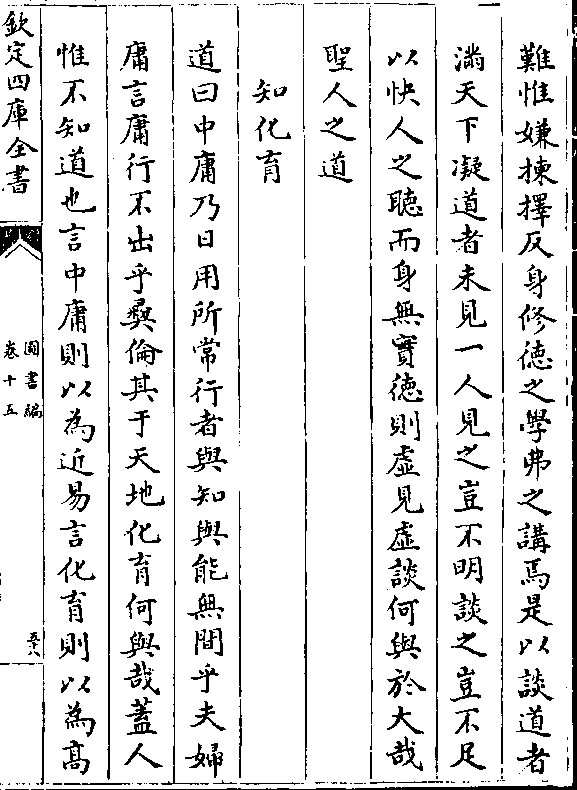 難惟嫌揀擇反身修德之學弗之講焉是以談道者
滿天下凝道者未見一人見之豈不明談之豈不足
以快人之聽而身無實德則虛見虛談何與於大哉
聖人之道
知化育
道曰中庸乃日用所常行者與知與能無間乎夫婦
庸言庸行不出乎彞倫其于天地化育何與哉蓋人
惟不知道也言中庸則以為近易言化育則以為髙
欽定四庫全書
圖書編
卷十五
五十八